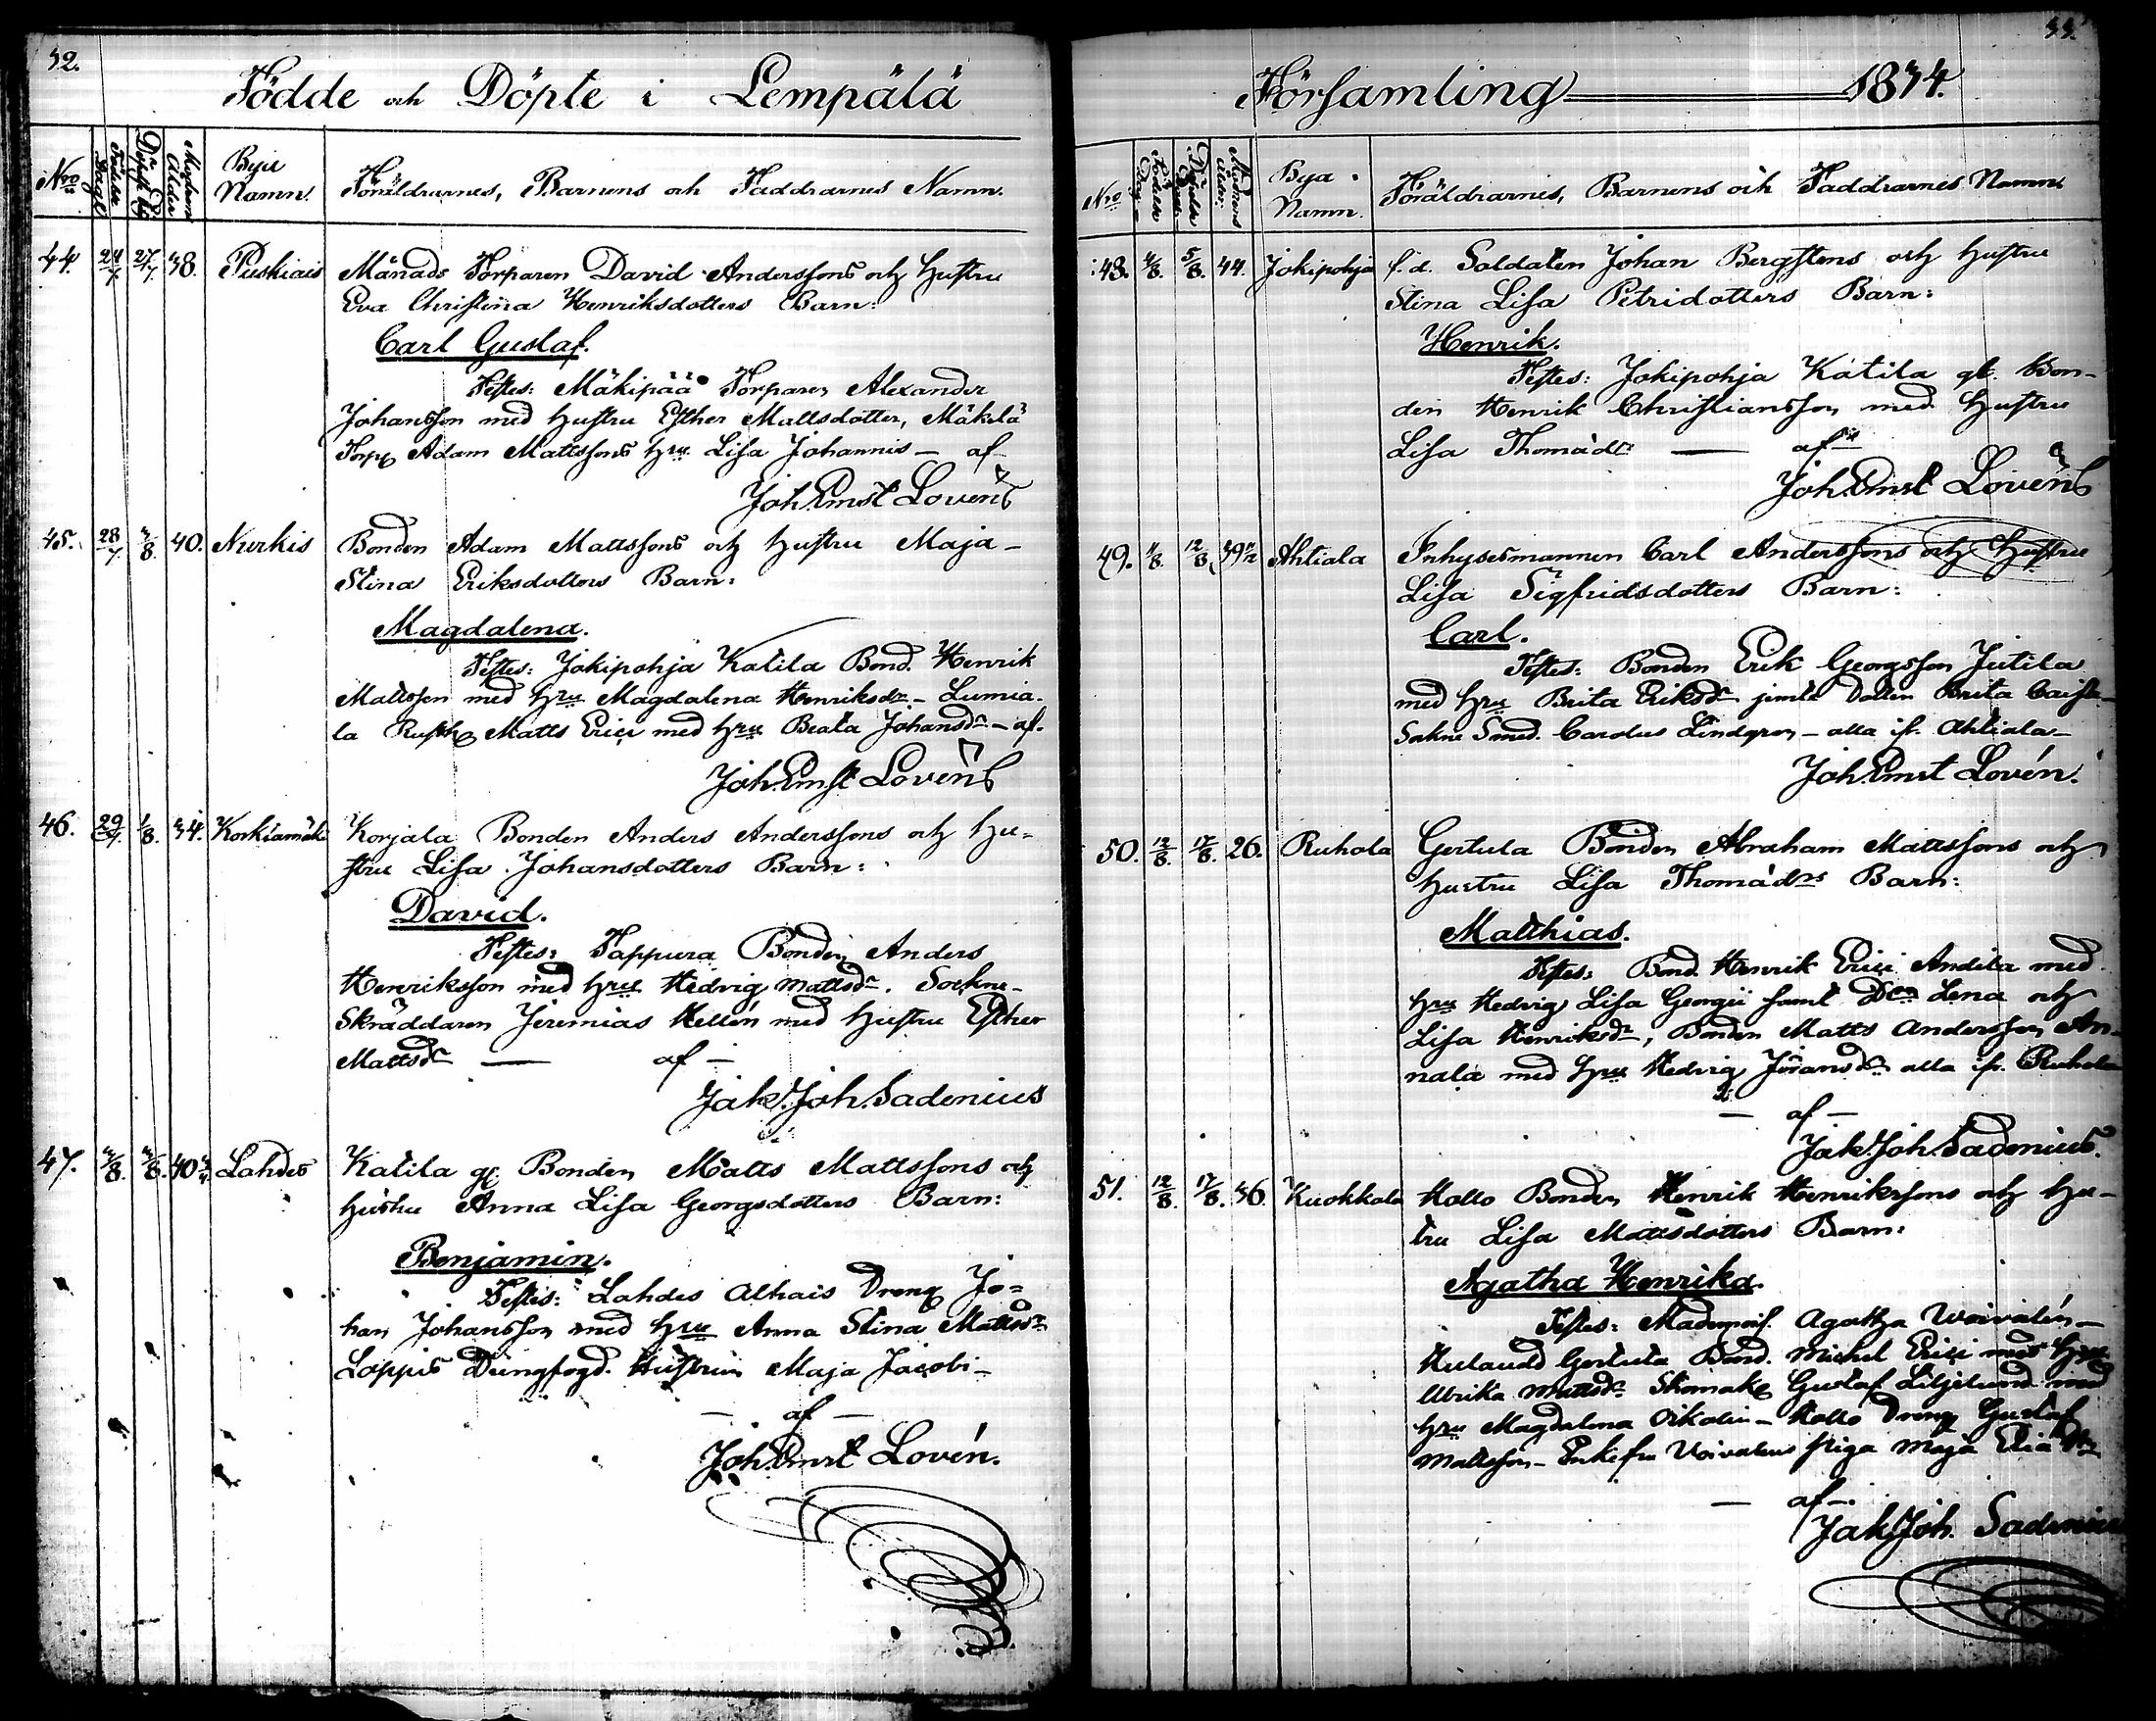 32.
Födde och Döpte i Lempälä
Nro
Födelse Dagl
Döpelse
Moderns Ålder
Bya Namn.
Föräldrarnes, Barnens och Faddrarnes Namn.
44. 24/7 27/7 38. Puskiais Månads Torparen David Anderssons och Hustru
Eva Christina Henriksdotters Barn:
Carl Gustaf.
Testes: Mäkipää Torparen Alexander
Johansson med hustru Esther Mattsdotter, Mäkelä
Torp. Adam Mattssons hru Lisa Johannis — af
Joh. Ernst Lovén
45. 28/7 3/8. 40. Nurkis Bonden Adam Mattssons och hustru Maja-
Stina Eriksdotters Barn:
Magdalena.
Testes: Jokipohja Katila Bond. Henrik
Mattsson med hru Magdalena Henriksdr – Lumia-
la Rusth. Matts Erici med hru Beata Johansdr – af.
Joh. Ernst Lovén
46. 29/7. 1/8. 34. Korkiamäki Korjala Bonden Anders Anderssons och hu-
stru Lisa Johansdotters Barn:
David.
Testes: Tappura Bonden Anders
Henriksson med hru Hedvig Mattsdr. Sockne-
Skräddaren Jeremias Hellén med hustru Esther
Mattsdr — af —
Jak. Joh. Sadenius
47. 3/8. 3/8. 40 Lahdes Katila gl. Bonden Matts Mattssons och
hustru Anna Lisa Georgsdotters Barn:
Benjamin.
Testes: Lahdes Alhais Dreng Jo-
han Johansson med hru Anna Stina Mattsdr
Loppis Drengfogd. Hustrun Maja Jacobi –
— af —
Joh. Ernst Lovén.
33.
Församling 1834.
Nro
Födelse Dag
Döpelse
Moderns ålder
Bya Namn.
Föräldrarnes, Barnens och Faddrarnes Namn
48. 4/8. 5/8. 44. Jokipohja f.d. Soldaten Johan Bergstens och hustru
Stina Lisa Petridotters Barn:
Henrik.
Testes: Jokipohja Katila gl. Bon-
den Henrik Christiansson med hustru
Lisa Thomædr — af
Joh. Ernst Lovén
49. 11/8. 12/8. 39½ Ahtiala Inhysesmannen Carl Anderssons och hustru
Lisa Sigfridsdotters Barn:
Carl.
Testes: Bonden Erik Georgsson Jutila
med hru Brita Eriksdr jimte Dottern Brita Caisa
Sokne Smed. Carolus Lindgren – alla ifr. Ahtiala –
Joh. Ernst Lovén.
50. 12/8. 17/8. 26. Ruhala Gertula Bonden Abraham Mattssons och
hustru Lisa Thomædrs Barn:
Matthias.
Testes: Bond. Henrik Erici Andila med
hru Hedvig Lisa Georgii samt Dr Lena och
Lisa Henriksdr, Bonden Matts Andersson An-
nala med hru Hedvig Jöransdr alla ifr. Ruhala
— af —
Jak. Joh. Sadenius.
51. 12/8. 17/8. 36. Kuokkala Hollo Bonden Henrik Henrikssons och hu-
tru Lisa Mattsdotters Barn:
Agatha Henrika.
Testes: Mademois. Agatha Woivalén –
Gertula Bond. Michel Erici med hru
Ulrika Mattsdr Skomak. Gustaf Liljelund med
hru Magdalena – Hollo Dreng Gustaf
Mattsson – Enkefru Woivalens piga Maja
— af —.
Jak. Joh. Sadenius